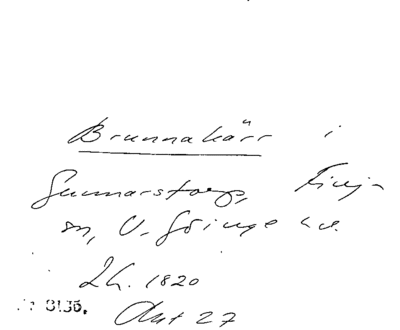 Brunnakärr i
Gunnarstorp, Finja
sn, V. Göinge hd.
Lh. 1820
Akt 27